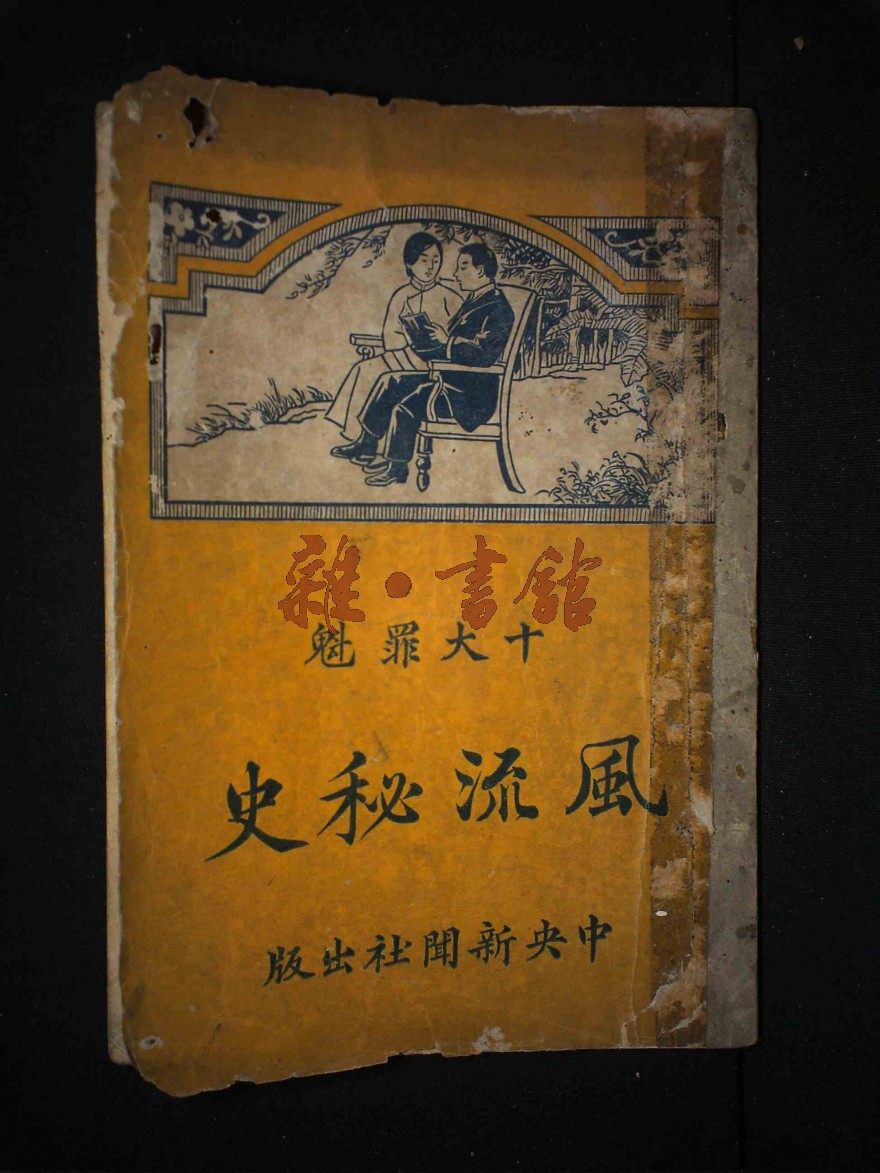 雜·書館
十大罪魁
風流秘史
中央新聞社出版